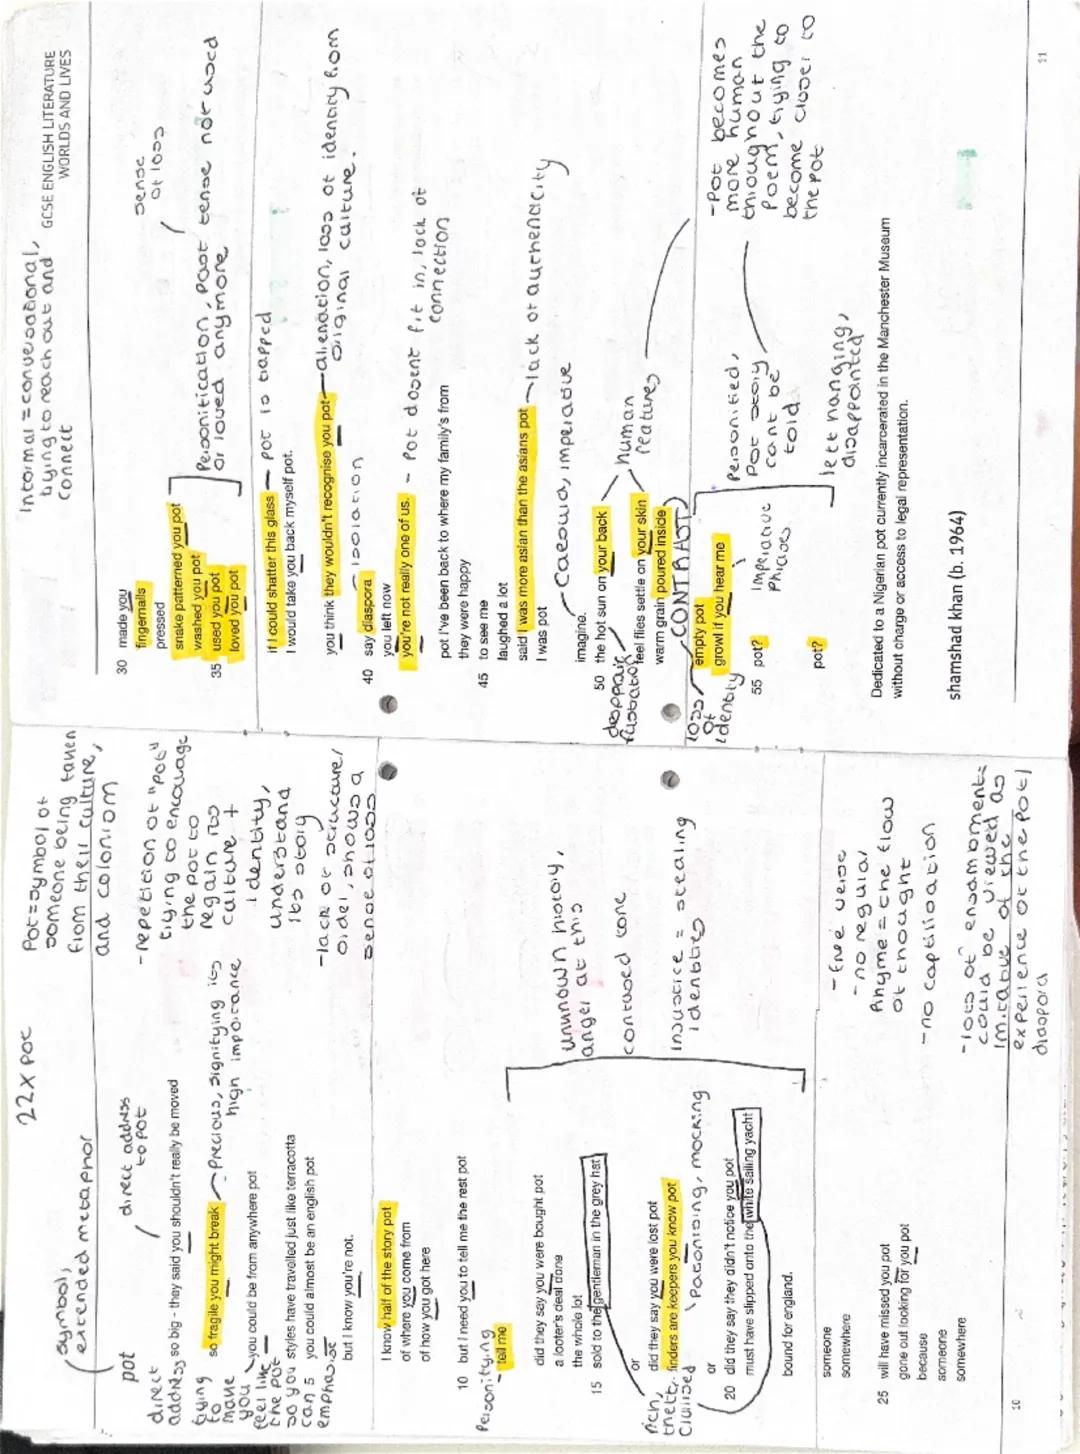 22x pot
Pot = symbol of
someone being taken
from their culture,
and colonism
symbol,
extended metaphor
pot
direct address
to pot
direct
address
so big - they said you shouldn't really be moved
so fragile you might break
Precious, signifying its
high importance
trying
to
make
you
feel like
the pot
so you
can
emphasise
you could be from anywhere pot
styles have travelled just like terracotta
5 you could almost be an english pot
but I know you're not.
- repetition of "pot"
trying to encourage
the pot to
regain its
culture +
identity,
understand
its story
- lack of structure/
order, shows a
sense of loss
I know half of the story pot
of where you come from
of how you got here
10 but I need you to tell me the rest pot
Personifying
- tell me
did they say you were bought pot
a looter's deal done
the whole lot
15 sold to the gentleman in the grey hat
or
did they say you were lost pot
finders are keepers you know pot
patronising, mocking
or
20 did they say they didn't notice you pot
must have slipped onto the white sailing yacht
bound for england.
rich,
theft,
civilised
unknown history,
anger at this
confused tone
injustice = stealing
identities
someone
somewhere
25 will have missed you pot
gone out looking for you pot
because
someone
somewhere
- free verse
- no regular
Rhyme = the flow
of thought
- no captiliation
- lots of enjambment =
could be viewed as
imitative of the
experience of the pot/
diaspora
10
Informal = conversational,
trying to reach out and
connect
GCSE ENGLISH LITERATURE
WORLDS AND LIVES
30 made you
fingernails
pressed
snake patterned you pot
washed you pot
35 used you pot
loved you pot
sense
of loss
Personification, past tense not used
or loved anymore
if I could shatter this glass
- pot is trapped
I would take you back myself pot.
you think they wouldn't recognise you pot
alienation, loss of identity from
original culture.
40 say diaspora
isolation
you left now
you're not really one of us.
- Pot dosent fit in, lack of
connection
pot I've been back to where my family's from
they were happy
45 to see me
laughed a lot
said I was more asian than the asians pot
lack of authenticity
I was pot
imagine.
Caesura, imperative
50 the hot sun on your back
feel flies settle on your skin
human
features
warm grain poured inside
CONTRAST
despair
frustration
empty pot
growl if you hear me
loss
of
identity
55 pot?
Imperative
phrases
pot?
Personified,
Pot story
cant be
told
left hanging,
disappointed
- Pot becomes
more human
throughout the
poem, trying to
become closer to
the pot
Dedicated to a Nigerian pot currently incarcerated in the Manchester Museum
without charge or access to legal representation.
shamshad khan (b. 1964)
11